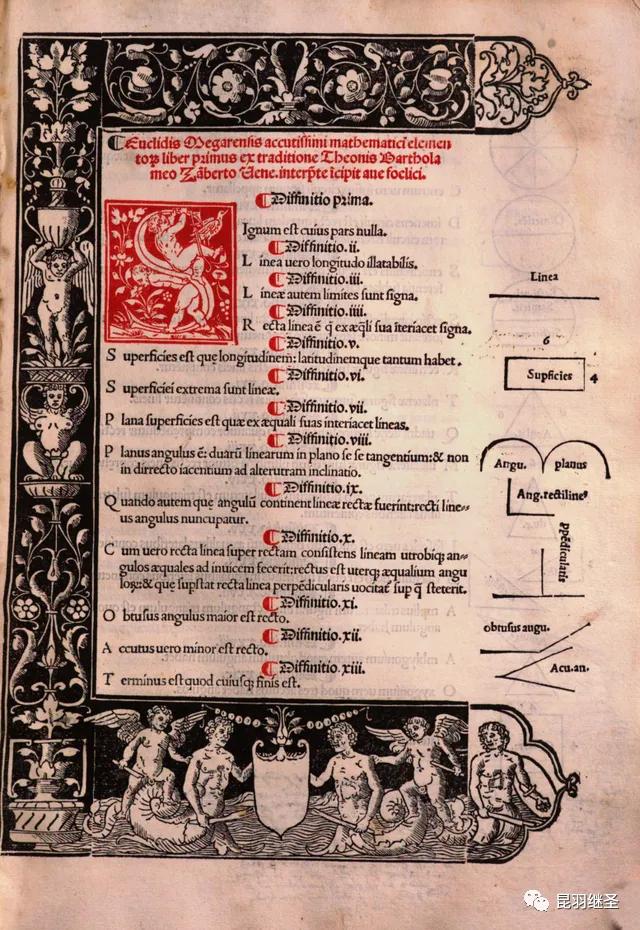 Euclidis Megarensis accutissimi mathematici elemen
torꝝ liber primus ex traditione Theonis Barthola
meo Zāberto Vene. interprte īcipit aue foelici.
Diffinitio prima.
Signum est cuius pars nulla.
Diffinitio.ii.
Linea uero longitudo illatabilis.
Diffinitio.iii.
Lineæ autem limites sunt signa.
Diffinitio.iiii.
Recta linea ē q̄ ex æq̄li sua īteriacet signa.
Diffinitio.v.
Superficies est que longitudinem: latitudinemque tantum habet.
Diffinitio.vi.
Superficiei extrema sunt lineæ.
Diffinitio.vii.
Plana superficies est quæ ex æquali suas interiacet lineas.
Diffinitio.viii.
Planus angulus ē: duarū linearum in plano se se tangentium: & non
in dirrecto iacentium ad alterutram inclinatio.
Diffinitio.ix.
Quando autem que angulū continent lineæ rectæ fuerint: recti line=
us angulus nuncupatur.
Diffinitio.x.
Cum uero recta linea super rectam consistens lineam utrobiq; an=
gulos æquales ad inuicem fecerit: rectus est uterq; æqualium angu
loꝝ: & que supstat recta linea perpēdicularis uocitať sup q̄ steterit.
Diffinitio.xi.
Obtusus angulus maior est recto.
Diffinitio.xii.
Accutus uero minor est recto.
Diffinitio.xiii.
Terminus est quod cuiusq; finis est.
Linea
6
Supficies 4
Angu. planus
Ang. rectilineꝰ
Ppēdicularis
obtusus augu.
Acu.an.
昆羽继圣